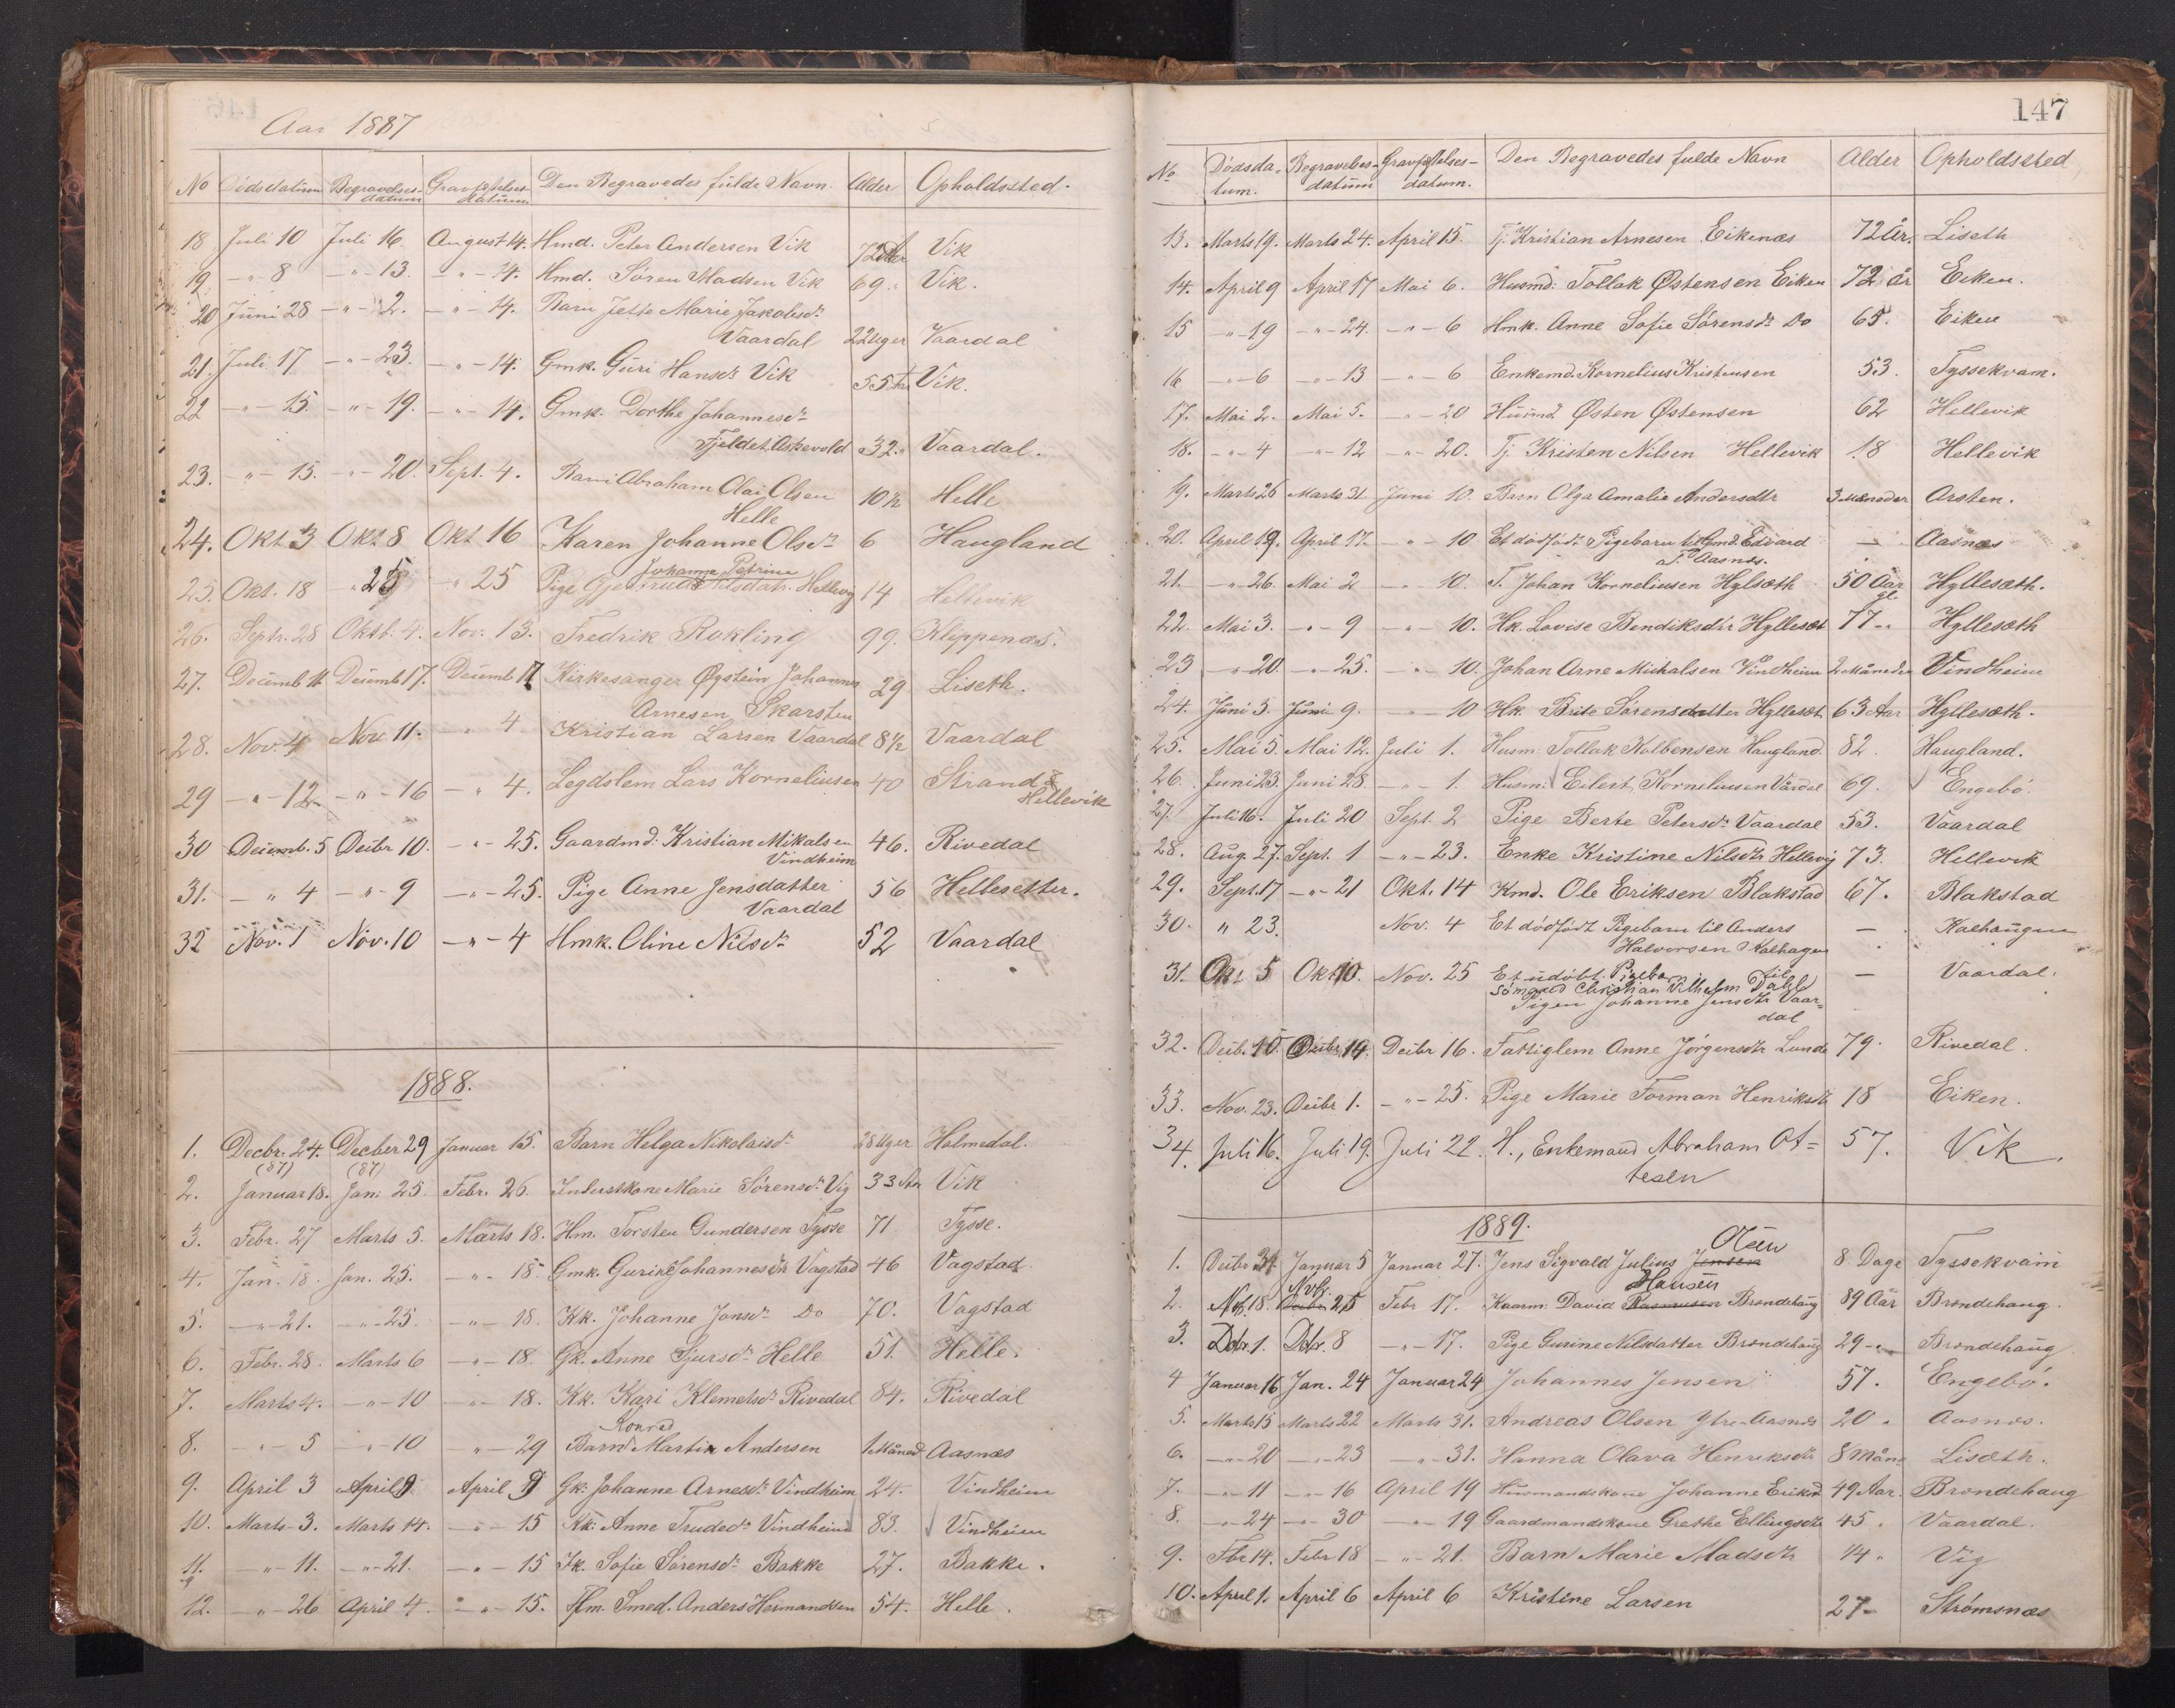 Aar 1887
No Dödsdatum Begravelses-datum Gravfæstelses-datum Den Begravedes fulde Navn. Alder Opholdssted.
18 Juli 10 Juli 16 August 14. Hmd. Peter Andersen Vik 72 Aar Vik
19 -"- 8 -"- 13. -"- 14. Hmd. Sören Madsen Vik 69." Vik.
20 Juni 28 -"- 2. -"- 14. Barn Jette Marie Jakobsd.
Vaardal 22 Uger Vaardal
21. Juli 17 -"- 23. -"- 14. Gmk. Guri Hansd. Vik 55 Vik.
22 -"- 15. -"- 19. -"- 14. Gmk. Dorthe Johannesd.
Fjeldet Askevold 32." Vaardal.
23. -"- 15. -"- 20. Sept. 4. Barn Abraham Olai Olsen 10½ Helle
Helle
24. Okt 3 Okt 8 Okt 16 Karen Johanne Olsd. 6 Haugland
Johanne Petrine
25. Okt. 18 " 25 " 25 Pige Gjertrude Nilsdatr. Hellevig 14 Hellevik
26. Septr. 28 Oktb. 4. Nov. 13. Fredrik Rokling 99. Klippenæs.
27. Decemb 11 Decemb 17. Decemb 17 Kirkesanger Øystein Johannes 29 Liseth.
Arnesen Skarsten
28. Nov. 4 Nov 11. " 4 Kristian Larsen Vaardal 8½ Vaardal
29 -"- 12 -"- 16 -"- 4. Legdslem Lars Korneliusen 40 Strand &
Hellevik
30 Decemb. 5 Decbr 10. -"- 25. Gaardmd. Kristian Mikalsen 46. Rivedal
Vindheim
31. -"- 4 -"- 9 -"- 25. Pige Anne Jensdatter 56 Hellesetter.
Vaardal
32 Nov. 1 Nov. 10 -"- 4 Hmk. Oline Nilsd. 52 Vaardal
1888.
1. Decbr. 24. Decber 29 Januar 15. Barn Helga Nikolaisd. 28 Uger Holmedal.
(87) (87)
2. Januar 18. Jan. 25. Febr. 26. Inderstkone Marie Sørensd. Vig 33 Aar Vik
3. Febr. 27 Marts 5. Marts 18. Hm. Torsten Gundersen Tysse 71 Tysse.
4. Jan. 18. Jan. 25. -"- 18. Gmk. Gurine Johannesdtr Vagstad 46 Vagstad
5. -"- 21. -"- 25 -"- 18. Kk. Johanne Jonsd. Do 70. Vagstad
6. Febr. 28. Marts 6 -"- 18. Gk. Anne Sjursd. Helle 51. Helle.
7. Marts 4. -"- 10 -"- 18. Kk. Kari Klemetsd. Rivedal 84. Rivedal
Konrad
8. -"- 5 -"- 10 -"- 29 Barn Martin Andersen 1 Måned Aasnæs
9. April 3 April 9 April 9 Gk. Johanne Arnesd. Vindheim 24. Vindheim
10. Marts 3. Marts 14. -"- 15 Kk. Anne Trudsd. Vindheim 83. Vindheim
11. -"- 11. -"- 21. -"- 15 Ik. Sofie Sørensd. Bakke 27. Bakke.
12. -"- 26 April 4. -"- 15. Hm. Smed. Anders Hermandsen 54. Helle.
147
No Dødsda-tum. Begravelses-datum Gravfæstelses-datum. Den Begravedes fulde Navn Alder Opholdssted
13. Marts 19. Marts 24. April 15. Tj. Kristian Arnesen Eikenæs 72 Aar. Liseth
14. April 9 April 17 Mai 6. Husmd. Tollak Østensen Eiken 72 år Eiken.
15 -"- 19 -"- 24. -"- 6 Hmk. Anne Sofie Sørensd. Do 65. Eiken
16 -"- 6 -"- 13 -"- 6 Enkemd. Kornelius Kristensen 53. Tyssekvam.
17. Mai 2. Mai 5. -"- 20 Husmd Østen Østensen 62 Hellevik
18. -"- 4 -"- 12 -"- 20. Tj. Kristen Nilsen Hellevik 18 Hellevik
19. Marts 26 Marts 31 Juni 10. Barn Olga Amalie Andersdtr 3 Måneder Arsten.
20. April 19. April 17. -"- 10 Et dødfødt Pigebarn til Gmd. Edvard — Aasnæs
Aasnæs.
21. -"- 26. Mai 2 -"- 10. T. Johan Korneliusen Hylsæth 50 Aar Hyllesæth.
22. Mai 3. -"- 9 -"- 10. Hk. Lovise Bendiksdtr Hyllesæt 77 -" Hyllesæth
23 -"- 20. -"- 25. -"- 10. Johan Arne Michalsen Vindheim 2 Måneder Vindheim
24. Juni 3. Juni 9. -"- 10 Hk. Brite Sørensdatter Hyllesæt 63 Aar Hyllesæth.
25. Mai 5. Mai 12. Juli 1. Husm. Tollak Kolbensen Haugland. 82. Haugland.
26. Juni 23. Juni 28 -"- 1. Husm. Eilert Korneliusen Vårdal 69. Engebö.
27. Juli 16. Juli 20 Sept. 2 Pige Berte Petersd. Vaardal 53. Vaardal
28. Aug. 27. Sept. 1 -"- 23. Enke Kristine Nilsdtr Hellevig 73. Hellevik
29. Sept. 17 -"- 21 Okt. 14 Kmd. Ole Eriksen Blakstad 67. Blakstad
30. " 23. Nov. 4 Et dödfödt Pigebarn til Anders — Kalhaugen
Halvorsen Kalhagen
31. Okt 5 Okt 10. Nov. 25 Et udöbt Pigebarn til — Vaardal.
Sömand Christian Vilhelm Dahl &
Pigen Johanne Jensdtr Vaar-
dal
32. Decb. 10. Decbr 14. Decbr 16. Fattiglem Anne Jörgensdtr Lunde 79. Rivedal.
33. Nov. 23. Decbr 1. -"- 25. Pige Marie Forman Henriksdtr 18 Eiken.
34. Juli 16. Juli 19. Juli 22. H., Enkemand Abraham Ot=
tesen 57. Vik.
1889.
Olsen
1. Decbr 31. Januar 5 Januar 27. Jens Sigvald Julius Jensen 8 Dage Tyssekvam
Nvbr. Hansen
2. Nvb. 18. Decbr 25 Febr 17. Kaarm. David Rasmusen Brandehaug 89 Aar Brandehaug.
3. Dcbr. 1. Dcbr. 8 -"- 17. Pige Gurine Nilsdatter Brandehaug 29 -" Brandehaug
4 Januar 16 Jan. 24 Januar 24 Johannes Jensen 57. Engebö.
5. Marts 15 Marts 22 Marts 31. Andreas Olsen Ytre-Aasnæs 20 " Aasnæs.
6. -"- 20 -"- 23 -"- 31. Hanna Olava Henriksdtr 8 Mån. Lisæth.
7. -"- 11 -"- 16 April 19 Husmandskone Johanne Eriksd 49 Aar. Brandehaug
8. -"- 24 -"- 30 -"- 19 Gaardmandskone Grethe Ellingsdtr 45. Vaardal.
9. Fbr 14. Febr 18 -"- 21. Barn Marie Madsdtr 44 " Vig
10. April 1. April 6 April 6 Kristine Larsen 27- Strømsnæs